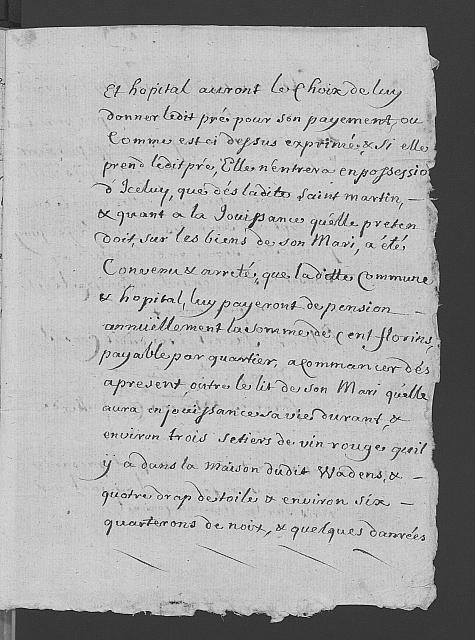 Et hopital auront le Choix de luy
donner ledit pré, pour son payement, ou
Comme est ci dessus exprimé, & si elle
prend ledit pré, Elle n'entrera en possessio
d'Iceluy, que dés ladite Saint martin, –
& quant a la Jouissance qu'elle preten
doit, sur les biens de son Mari, a été
Convenu & arreté, que ladite Commune
& hopital, luy payeront de pension –
annuellement la somme de Cent florins,
payable par quartier, a commancer dés
apresent, outre le lit de son Mari qu'elle
aura en jouissance sa vie durant, &
environ trois setiers de vin rouge qu'il
y a dans la maison dudit Wadens, &
quatre drap de toile & environ six –
quarterons de noix, & quelques danrées